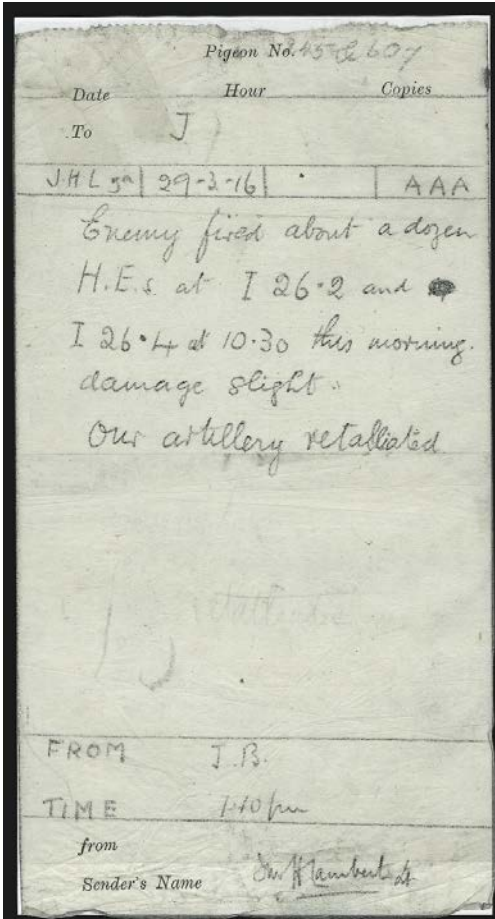 Pigeon No. 45 & 607
Date Hour Copies
To J
J.H.L 29-3-16 AAA
Enemy fired about a dozen
H.E.s at I 26.2 and
I 26.4 at 10.30 this morning.
damage slight.
Our artillery retalliated
FROM J.B.
TIME 1.10 pm
from
Sender's Name H Lambert Lt